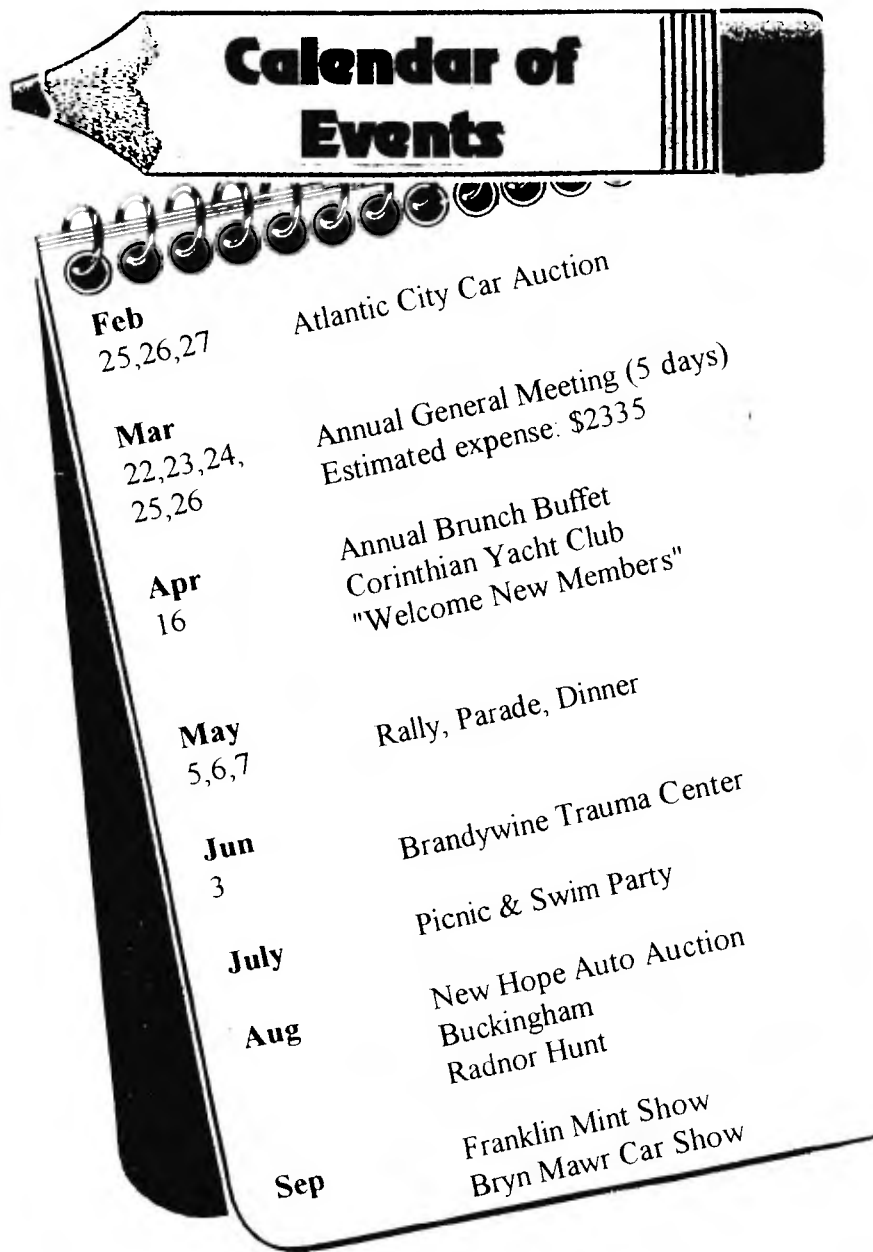 Calendar of
Events
Feb
25,26,27
Atlantic City Car Auction
Mar
22,23,24,
25,26
Annual General Meeting (5 days)
Estimated expense: $2335
Apr
16
Annual Brunch Buffet
Corinthian Yacht Club
"Welcome New Members"
May
5,6,7
Rally, Parade, Dinner
Jun
3
Brandywine Trauma Center
July
Picnic & Swim Party
Aug
New Hope Auto Auction
Buckingham
Radnor Hunt
Sep
Franklin Mint Show
Bryn Mawr Car Show